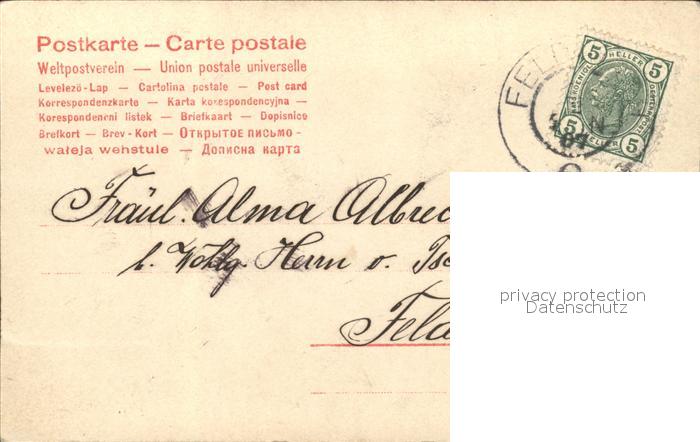 Postkarte — Carte postale
Weltpostverein — Union postale universelle
Levelezö-Lap — Cartolina postale — Post card
Korrespondenzkarte — Karta korespondencyjna —
Korespondencni listek — Briefkaart — Dopisnice
Brefkort — Brev-Kort — Открытое письмо -
wałeja wehstule — Дописна карта
FELD
5 HELLER 5
5 5
Fräul. Alma Albrec
b. Wohlg. Herrn v. Tsc
Feld
privacy protection
Datenschutz